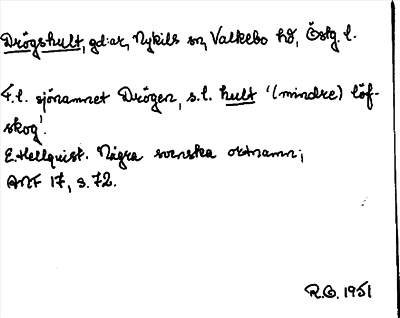 Drögshult, gd:ar, Nykils sn, Valkebo hd, Östg. l.
F.l. sjönamnet Drögen, s.l. hult '(mindre) löf-
skog'.
E. Hellquist. Några svenska ortnamn;
ANF 17, s. 72.
R.O. 1951